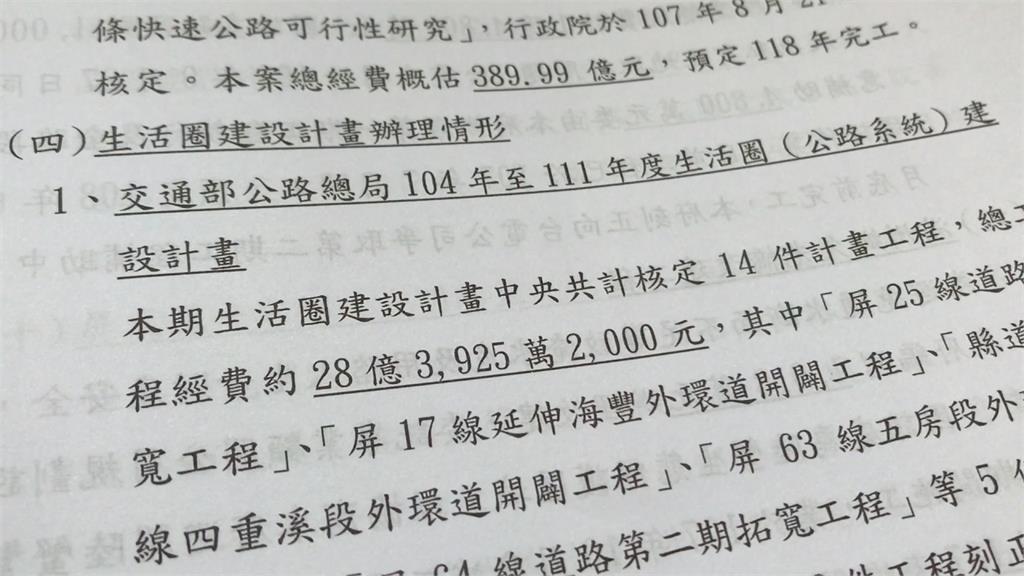 條快速公路可行性研究」,行政院於 107 年 8 月 21
核定。本案總經費概估 389.99 億元,預定 118 年完工。
(四)生活圈建設計畫辦理情形
1、交通部公路總局 104 年至 111 年度生活圈(公路系統)建
設計畫
本期生活圈建設計畫中央共計核定 14 件計畫工程,總工
程經費約 28 億 3,925 萬 2,000 元,其中「屏 25 線道路
寬工程」、「屏 17 線延伸海豐外環道開闢工程」、「縣道
線四重溪段外環道開闢工程」、「屏 63 線五房段外
64 線道路第二期拓寬工程」等 5
工程刻正